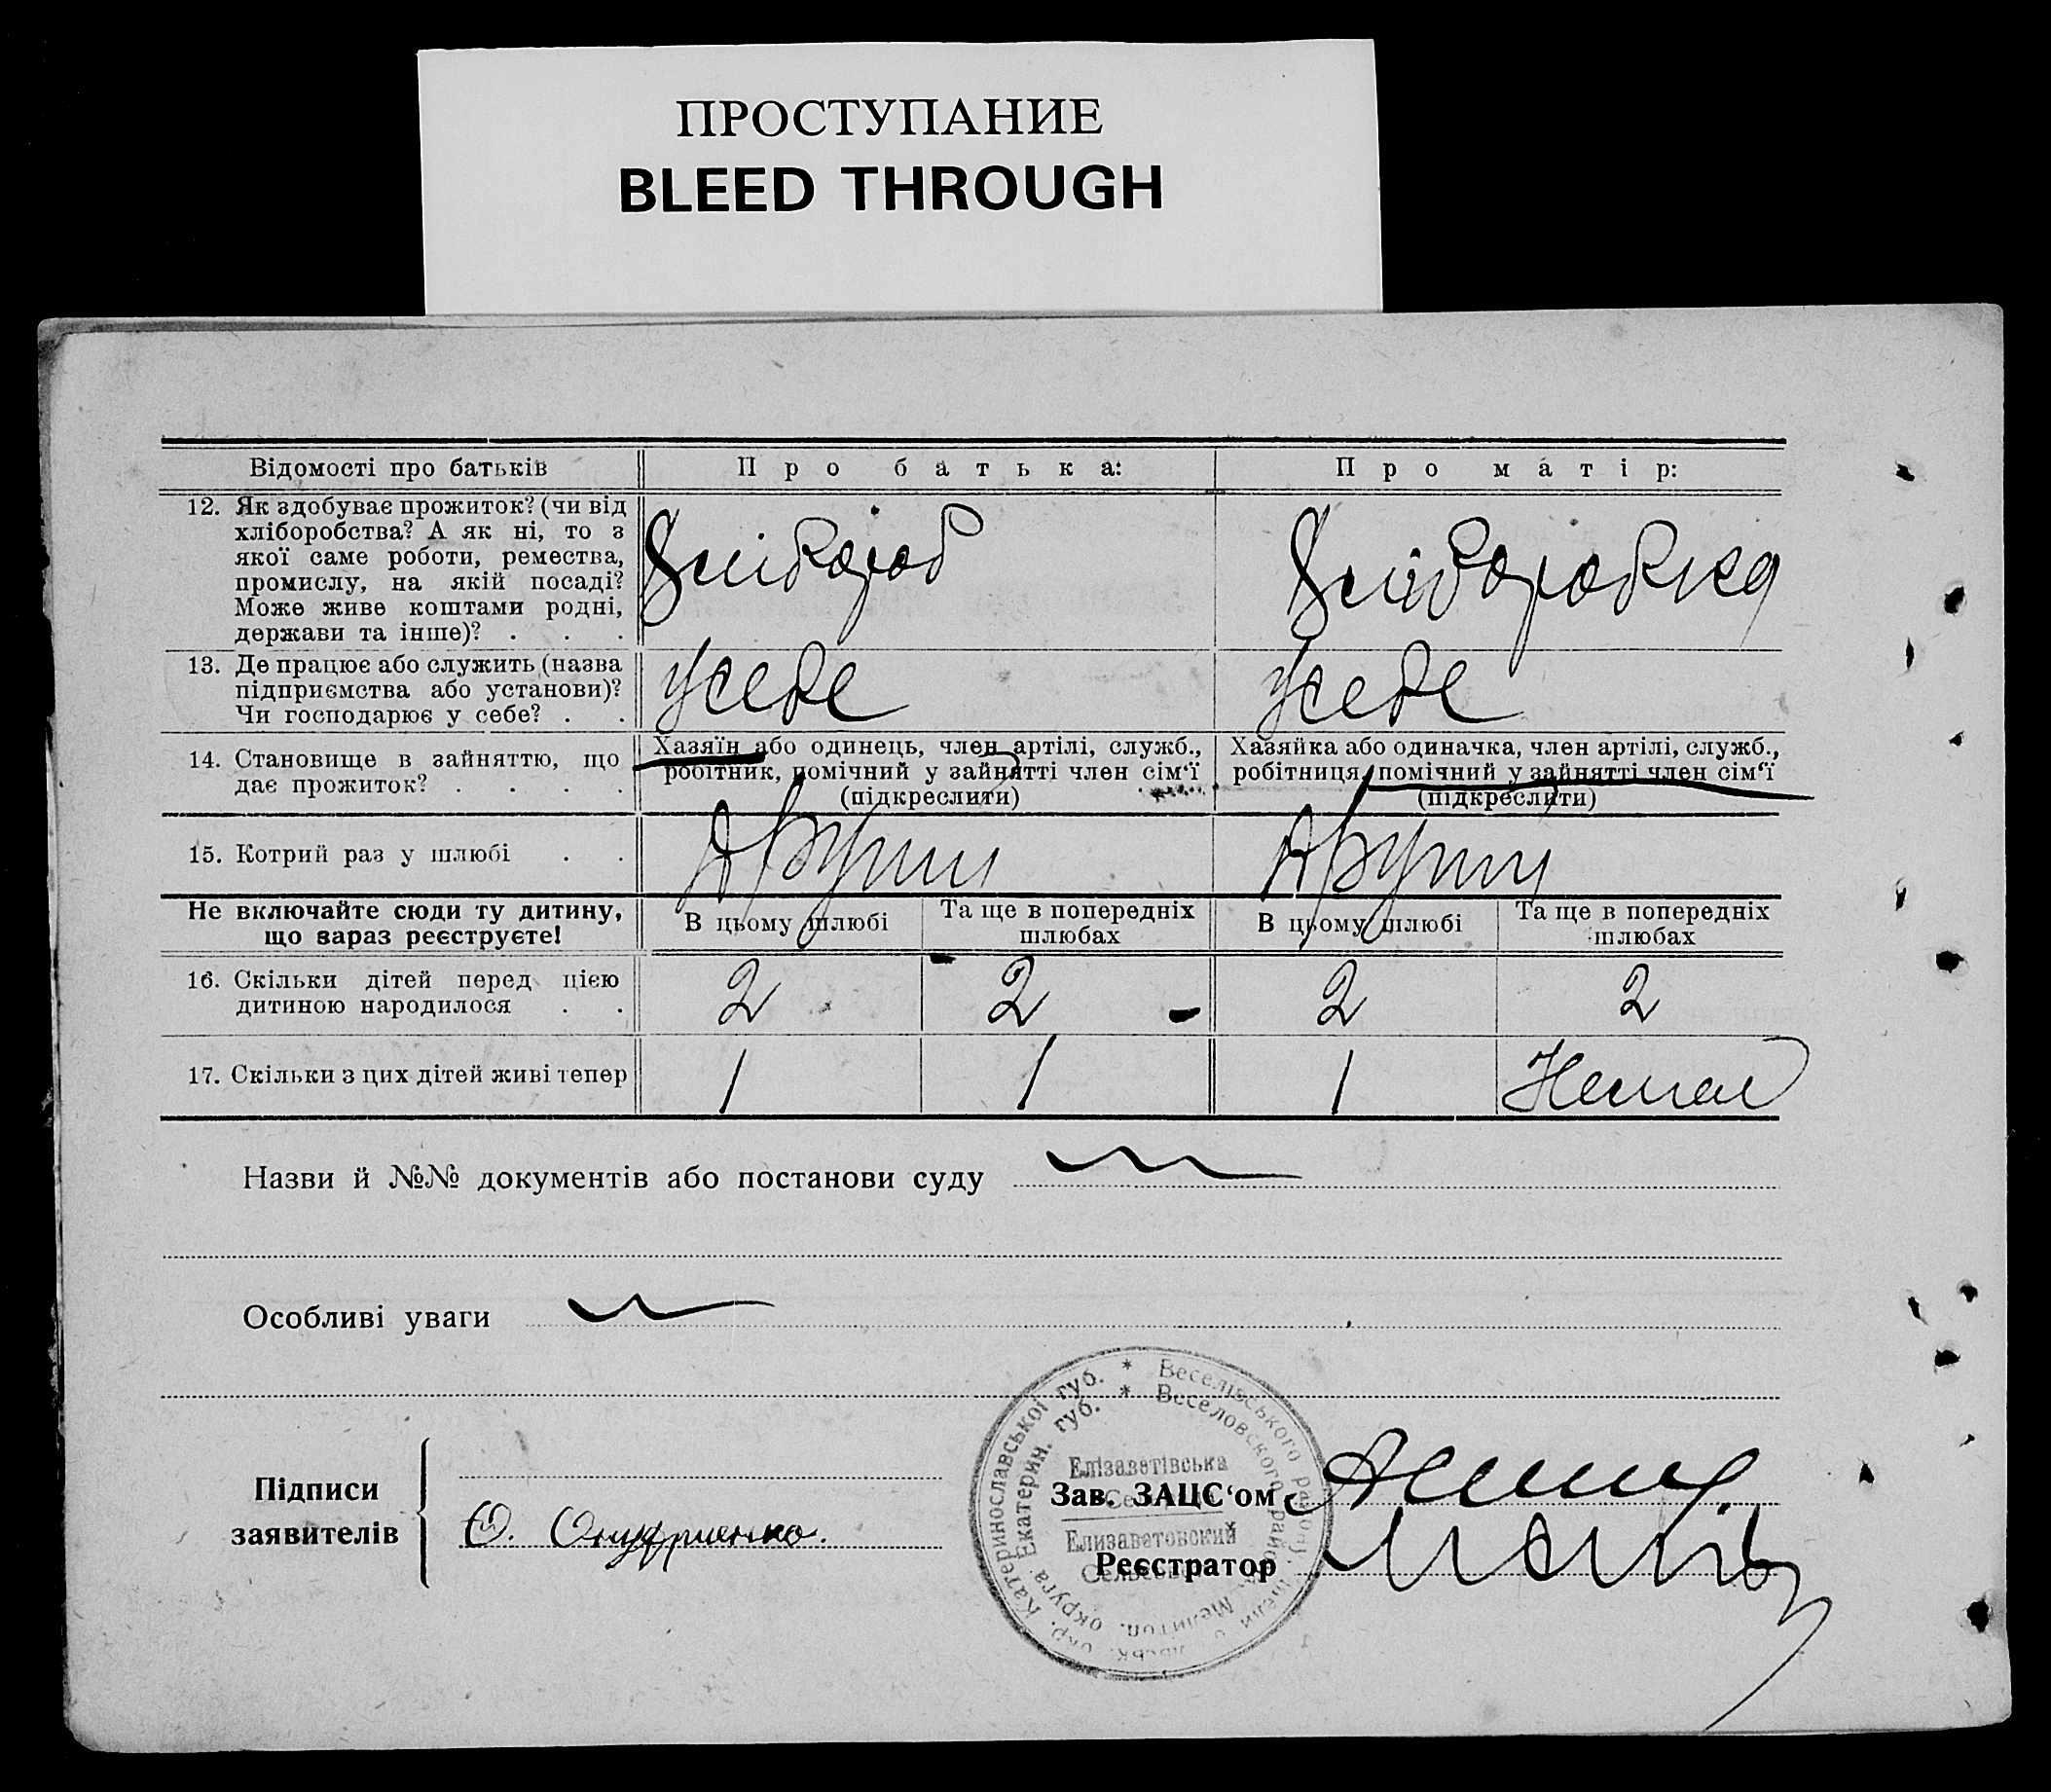 ПРОСТУПАНИЕ
BLEED THROUGH
Відомості про батьків
Про батька:
Про матір:
12. Як здобуває прожиток? (чи від
хліборобства? А як ні, то з
якої саме роботи, ремества,
промислу, на якій посаді?
Може живе коштами родні,
держави та інше)? . . .
Хлібороб
Хліборобка
13. Де працює або служить (назва
підприємства або установи)?
Чи господарює у себе? . .
У себе
У себе
14. Становище в зайняттю, що
дає прожиток? . . . .
Хазяїн або одинець, член артілі, служб.,
робітник, помічний у зайнятті член сім‘ї
(підкреслити)
Хазяйка або одиначка, член артілі, служб.,
робітниця, помічний у зайнятті член сім‘ї
(підкреслити)
15. Котрий раз у шлюбі . .
Не включайте сюди ту дитину,
що зараз реєструєте!
В цьому шлюбі
Та ще в попередніх
шлюбах
В цьому шлюбі
Та ще в попередніх
шлюбах
16. Скільки дітей перед цією
дитиною народилося . .
2
2
2
2
17. Скільки з цих дітей живі тепер
1
1
1
Немає
Назви й №№ документів або постанови суду
Особливі уваги
Підписи
заявителів
О. Онуфриенко.
Зав. ЗАЦС‘ом
Реєстратор
* Веселівського район
окр. Катеринославської губ.
* Веселовского район. Мелитоп. округа Екатерин. губ.
Елізаветівська
Елизаветовский